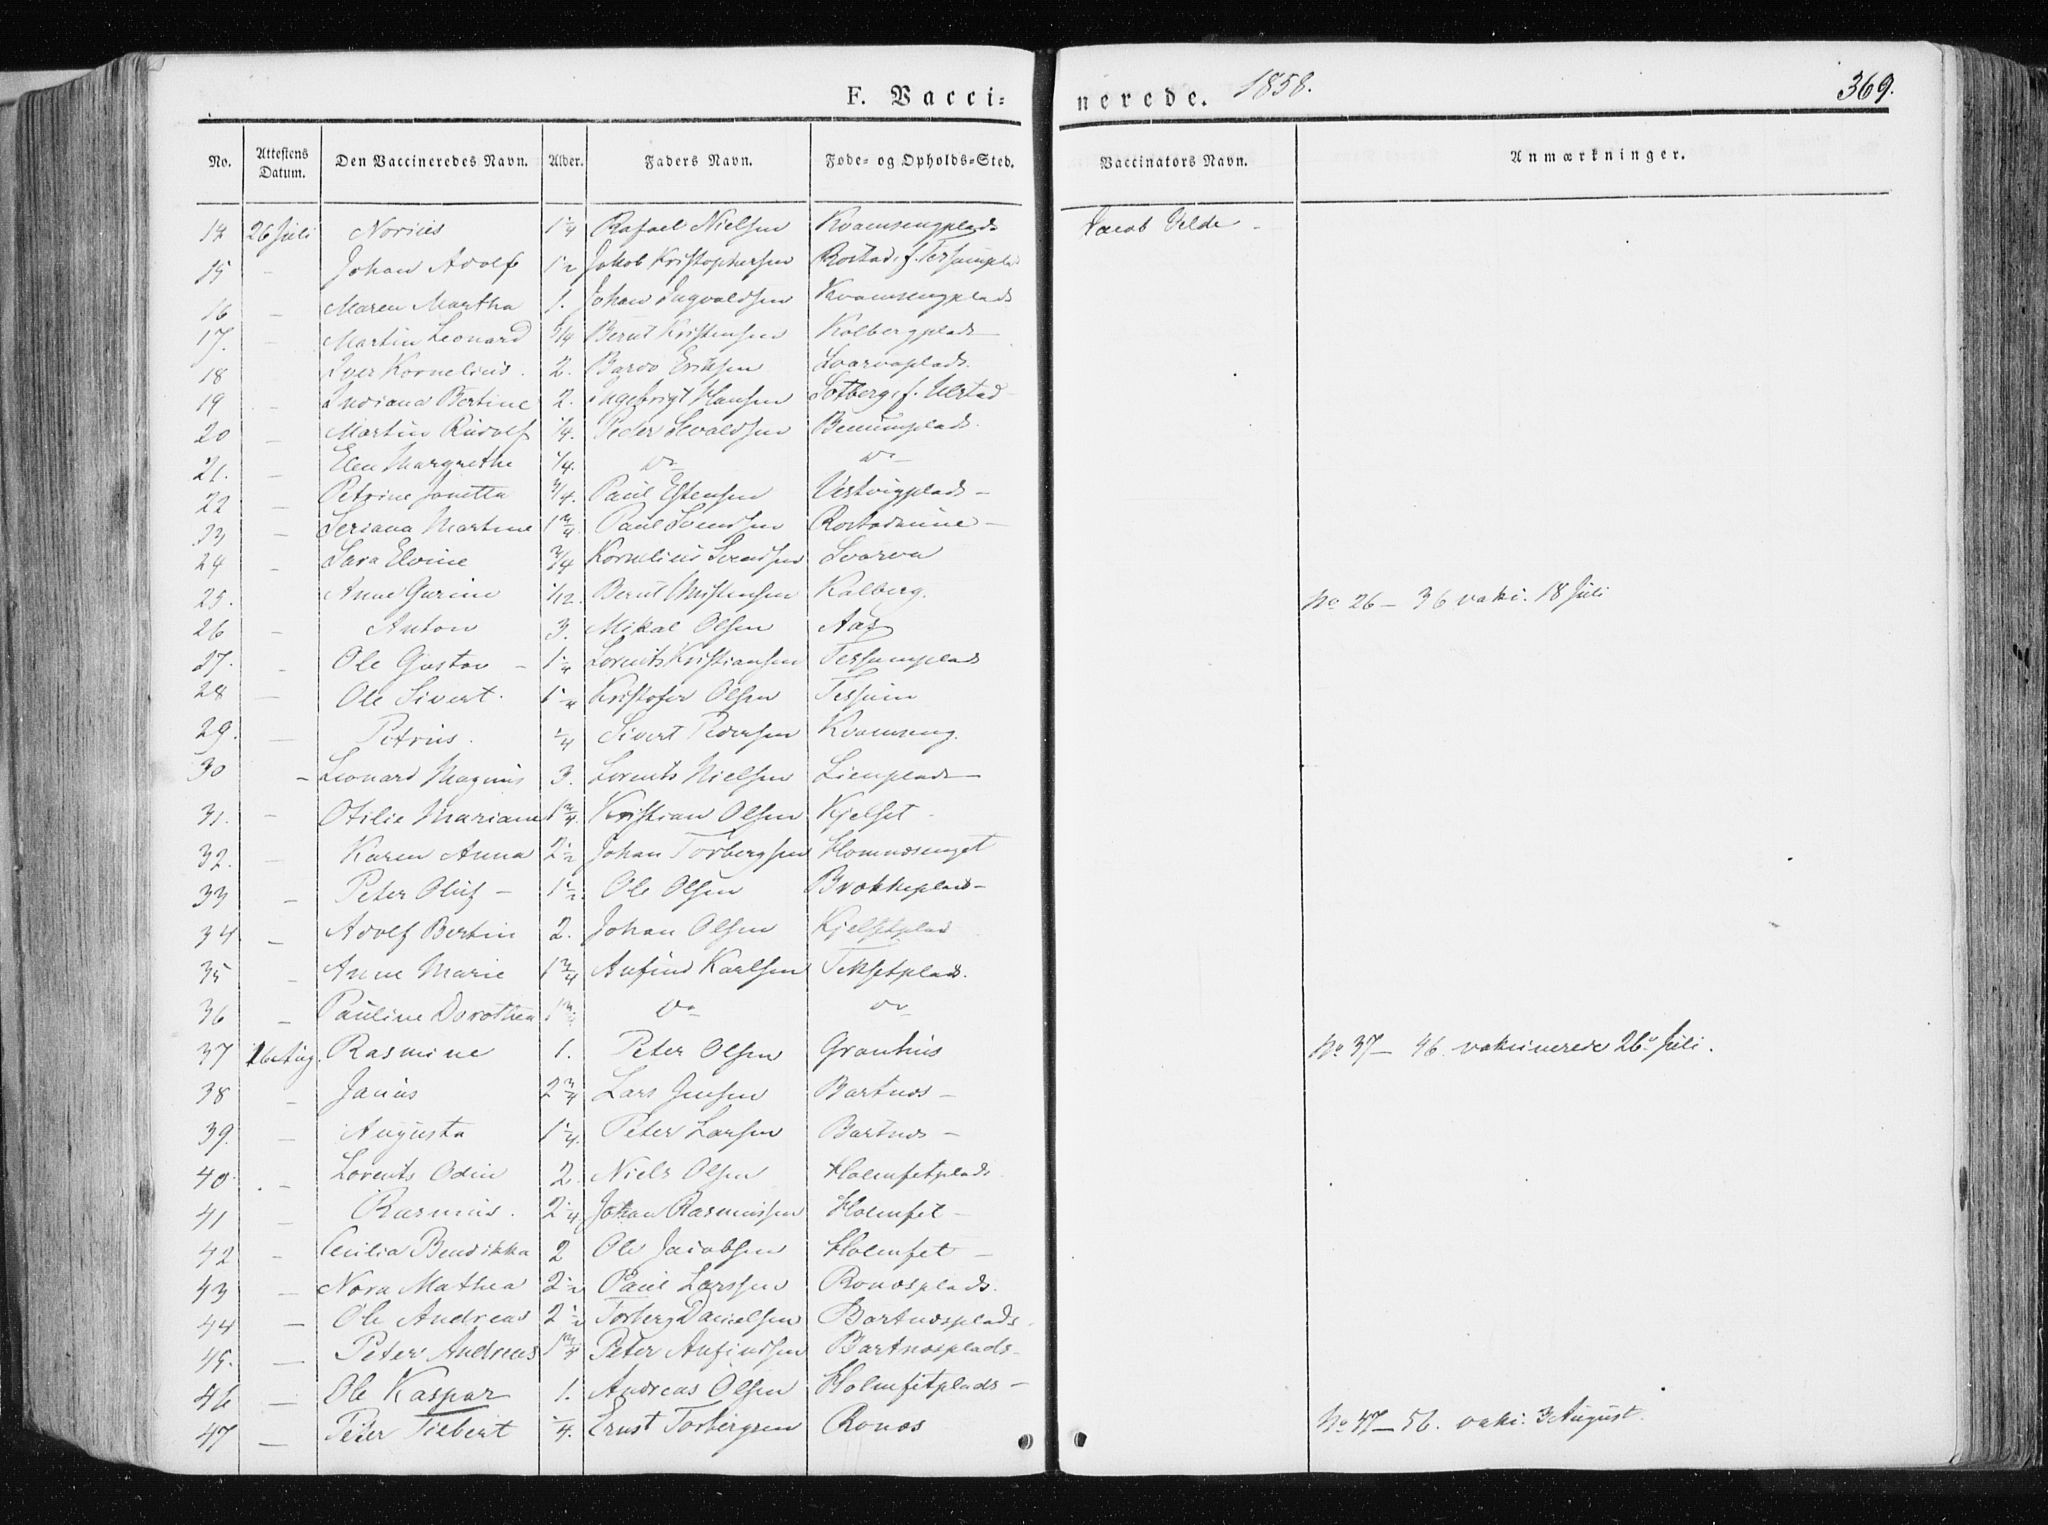 F. Vaccinerede. 1858. 369.
No. Attestens Datum. Den Vaccineredes Navn. Alder. Faders Navn. Føde- og Opholds-Sted. Vaccinators Navn. Anmærkninger.
14 26 Juli Norius 1 1/4 Rafael Nielsen Kvamsengplads Jacob Velde -
15 - Johan Adolf 1 1/2 Jakob Kristophersen Rostad, f.
16 - Maren Martha 1. Johan Ingvaldsen Kvamsengplads
17. - Martin Leonard 5/4 Bernt Kristensen Kolbergplads
18 - Iver Kornelius. 2. Bardo Eriksen Svarvaplads.
19 - Indiana Bertine 2. Ingebrigt Hansen Sotberg, f. Ulstad
20 - Martin Rudolf 1/4. Peder Sevaldsen
21. - Elen Margrethe 1/4. do do
22 - Petrine Jonetta 3/4. Paul Estensen Vestvigplads -
23 - Seriana Martine 1 3/4 Paul Svendsen Rostadaune -
24 - Sara Elvine 3/4 Kornelius Svendsen Svarva
25. - Anne Gurine 1/12. Bernt Kristensen Kalberg.
No 26 - 36 vaki. 18 Juli
26 - Anton 3. Mikal Olsen Aas
27. - Ole Gustav - 1 1/4 Lorents Kristiansen Tessumplads
28 - Ole Sivert. 1 1/4 Kristofer Olsen Tessum
29. - Petrus. 1/4 Sivert Pedersen Kvamseng.
30 - Leonard Magnus 3. Lorents Nielsen Lienplads
31. - Otilie Mariane 1 3/4. Kristian Olsen Kjelset -
32. - Karen Anna 2 1/2 Johan Torbergsen Homnesenget
33 - Peter Oluf - 1 1/2. Ole Olsen Brokkeplads -
34. - Adolf Bertin 2. Johan Olsen Kjelsetplad
35 - Anne Marie 1 3/4 Anfind Karlsen Teksetplads.
36 - Pauline Dorothea 1 3/4 do do
37 16 Aug. Rasmine 1. Peter Olsen Granhus No 37 - 46. vakcinerede 26. Juli.
38 - Janus 2 3/4 Lars Jensen Bartnes -
39. - Augusta 1 1/4. Peter Larsen Bartnes -
40. - Lorents Odin 2. Niels Olsen Holmsetplads.
41 - Rasmus. 2 1/4 Johan Rasmussen Holmset -
42 - Cecilia Bendikka 2 Ole Jacobsen Holmset -
43 - Nora Mathea 2 1/2 Paul Larssen Ronesplads.
44 - Ole Andreas 2 1/2 Torberg Danielsen Bartnesplads.
45. - Peter Andreas 1 3/4 Peter Anfindsen Bartnesplads -
46 - Ole Kaspar 1. Andreas Olsen Holmsetplads -
47 - Peter Tiebert 1/4. Ernst Torbergsen Rones No 47 - 56. vaki. 3 August.